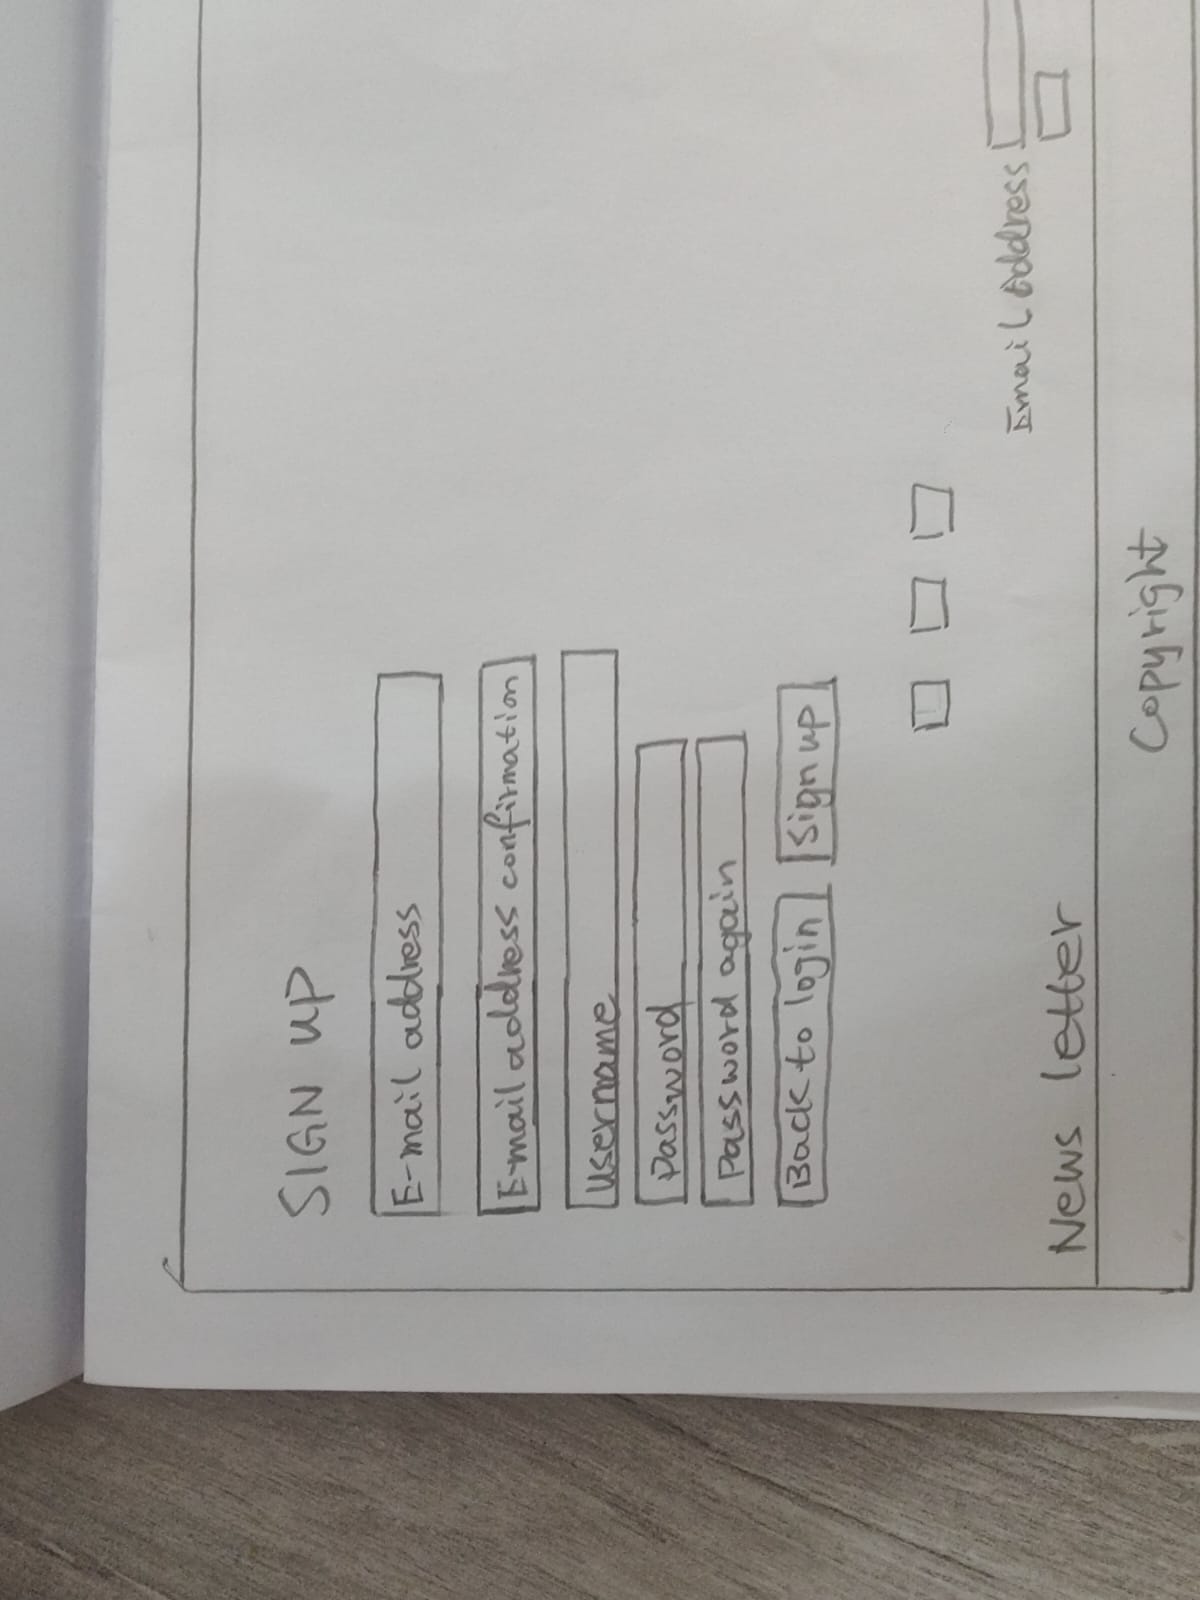 SIGN UP
E-mail address
E-mail address confirmation
username
Password
Password again
Back to login
Sign up
Email Address
News letter
Copyright